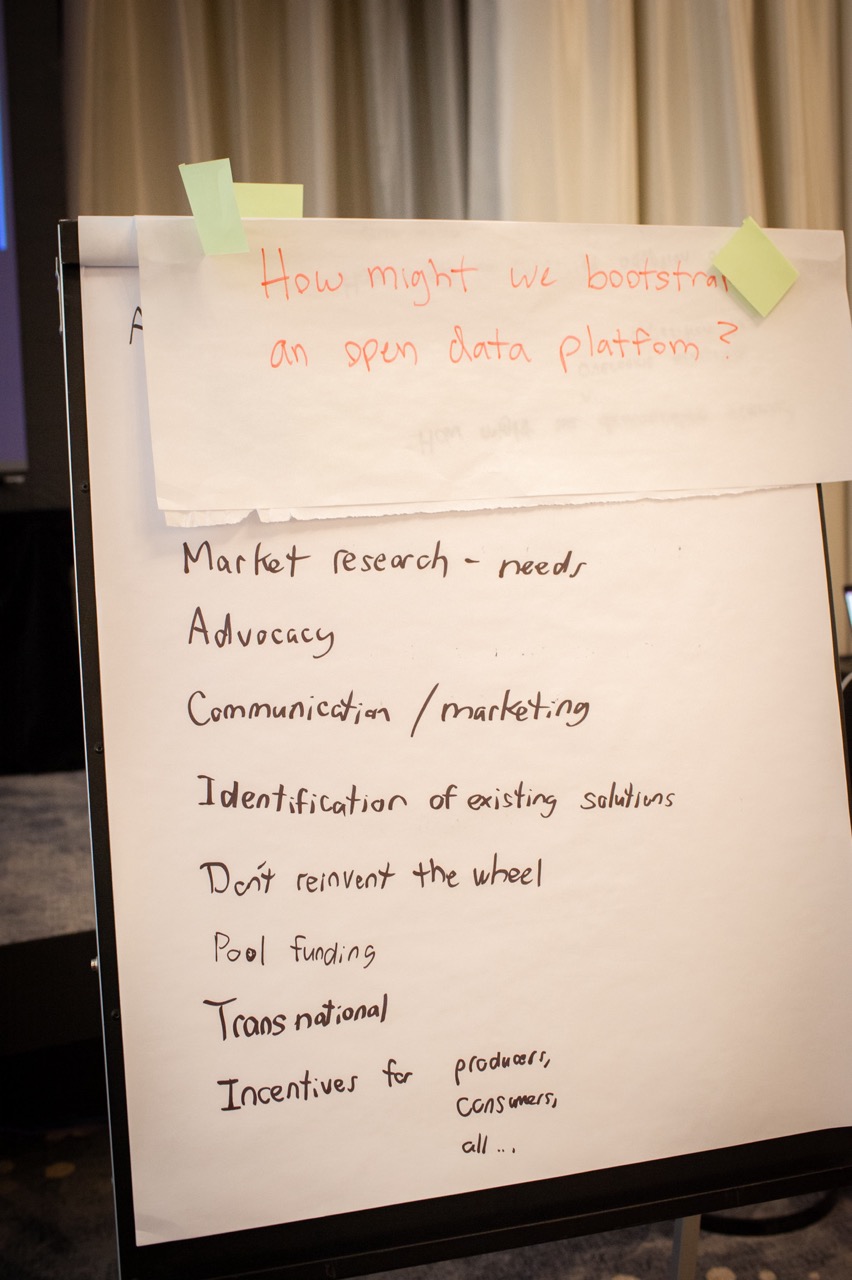 How might we bootstra
an open data platfom?
A
Market research - needs
Advocacy
Communication / marketing
Identification of existing solutions
Don't reinvent the wheel
Pool funding
Transnational
Incentives for producers,
consumers,
all ...